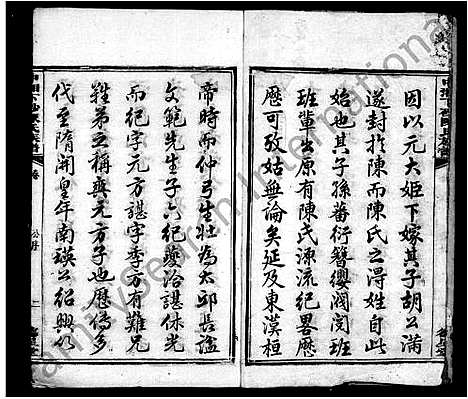 因以元大姬下嫁其子胡公滿
遂封於陳而陳氏之得姓自此
始也其子孫蕃衍簪纓閥閱班
班輩出原有陳氏源流紀畧歷
歷可攷姑無論矣延及東漢桓
帝時而仲弓生壯為太邱長諡
文範先生子六紀夔洽諶休光
而紀字元方諶字季方有難兄
難弟之稱與元方子也歷傳多
代至隋開皇年南璜公紹興